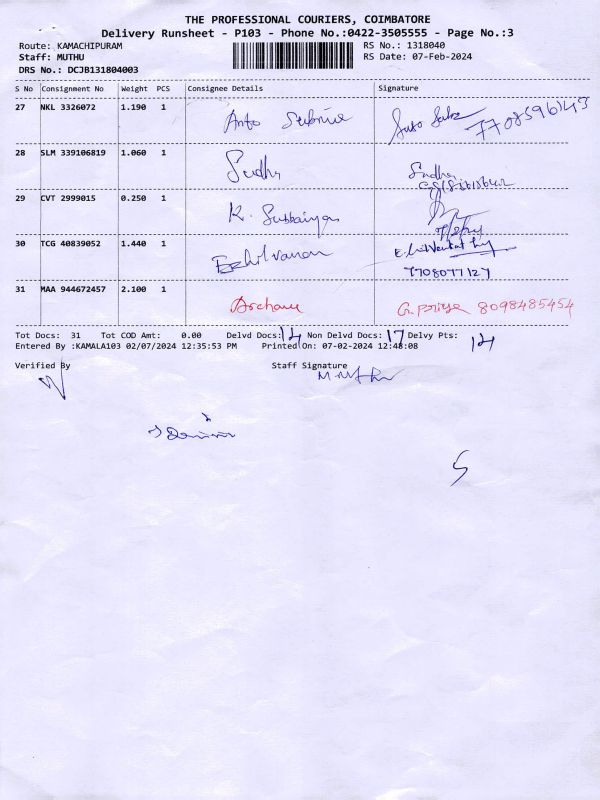 THE PROFESSIONAL COURIERS, COIMBATORE
Delivery Runsheet - P103 - Phone No.:0422-3505555 - Page No.:3
Route: KAMACHIPURAM RS No.: 1318040
Staff: MUTHU RS Date: 07-Feb-2024
DRS No.: DCJB131804003
S No Consignment No Weight PCS Consignee Details Signature
27 NKL 3326072 1.190 1 Anto
28 SLM 339106819 1.060 1 Sudha Sudha
29 CVT 2999015 0.250 1 K. Subbaiyan
30 TCG 40839052 1.440 1 Ezhilvanan
7708077127
31 MAA 944672457 2.100 1 Archana G. Priya 8098485454
Tot Docs: 31 Tot COD Amt: 0.00 Delvd Docs: 14 Non Delvd Docs: 17 Delvy Pts: 14
Entered By :KAMALA103 02/07/2024 12:35:53 PM Printed On: 07-02-2024 12:48:08
Verified By Staff Signature
Muthu